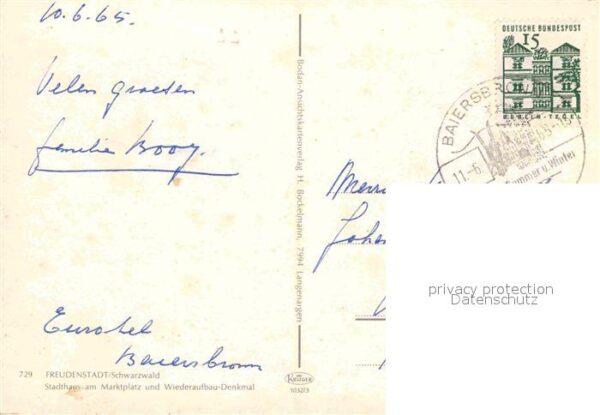 10.6.65.
Velen groeten
familie Booy.
Eurotel
Baiersbronn
729 FREUDENSTADT/Schwarzwald
Stadthaus am Marktplatz und Wiederaufbau-Denkmal
Bodan-Ansichtskartenverlag H. Bockelmann, 7994 Langenargen
1032/3
DEUTSCHE BUNDESPOST
15
BERLIN-TEGEL
BAIERSBRONN
11.-6.
Sommer u. Winter
privacy protection
Datenschutz